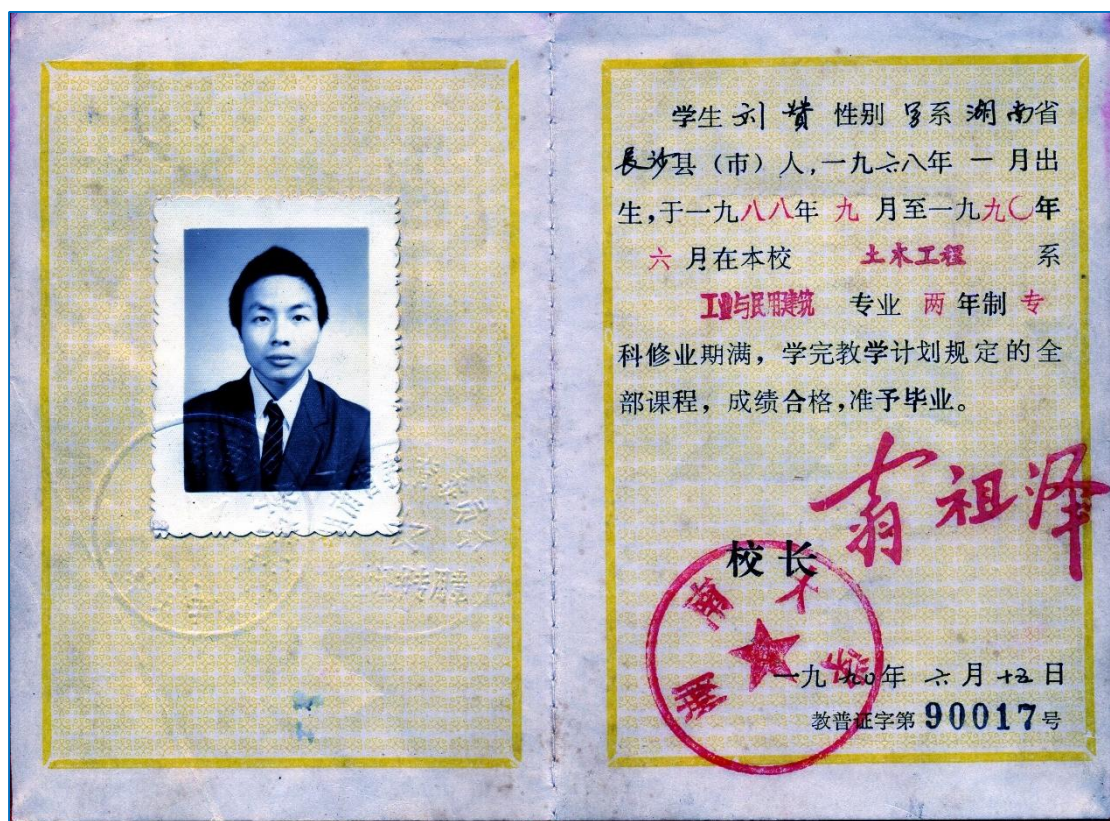 学生 刘赞 性别 男 系 湖南省
长沙县（市）人，一九六八年 一 月出
生，于一九八八年 九 月至一九九〇年
六 月在本校 土木工程 系
工业与民用建筑 专业 两 年制 专
科修业期满，学完教学计划规定的全
部课程，成绩合格，准予毕业。
翁祖泽
校长
湖南大学
一九九0年 六 月 十五 日
教普证字第 90017 号
专用章